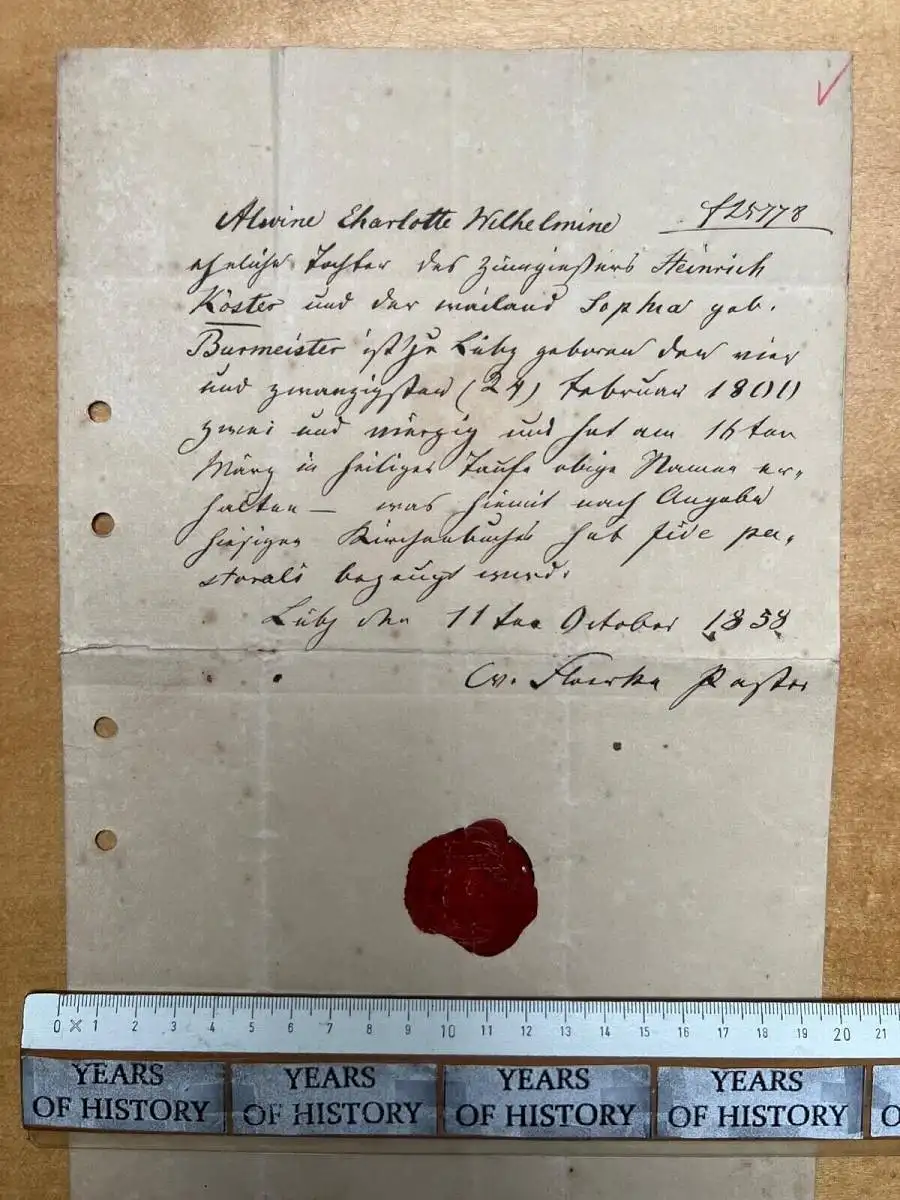 f 25778
Alwine Charlotte Wilhelmine
eheliche Tochter des Zinngießers Heinrich
Köster und der weiland Sophia geb.
Burmeister ist zu Lübz geboren den vier
und zwanzigsten (24) Februar 1800
zwei und vierzig und hat am 16 ten
März in heiliger Taufe obige Namen er-
halten – was hiemit nach Angabe
hiesigen Kirchenbuches sub fide pa-
storali bezeugt wird.
Lübz den 11 ten October 1858
Floerke Pastor
0 1 2 3 4 5 6 7 8 9 10 11 12 13 14 15 16 17 18 19 20 21
YEARS OF HISTORY YEARS OF HISTORY YEARS OF HISTORY YEARS OF HISTORY